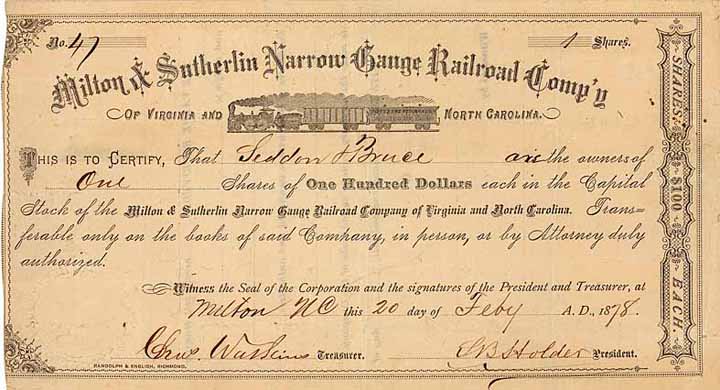 No. 47 1 Shares.
Milton & Sutherlin Narrow Gauge Railroad Comp'y
OF VIRGINIA AND NORTH CAROLINA.
THIS IS TO CERTIFY, That Seddon & Bruce are the owners of
One Shares of One Hundred Dollars each in the Capital
Stock of the Milton & Sutherlin Narrow Gauge Railroad Company of Virginia and North Carolina. Trans-
ferable only on the books of said Company, in person, or by Attorney duly
authorized.
Witness the Seal of the Corporation and the signatures of the President and Treasurer, at
Milton NC this 20 day of Feby A. D., 1878.
Chas. Watkins Treasurer. Holder President.
RANDOLPH & ENGLISH, RICHMOND.
SHARES $100 EACH